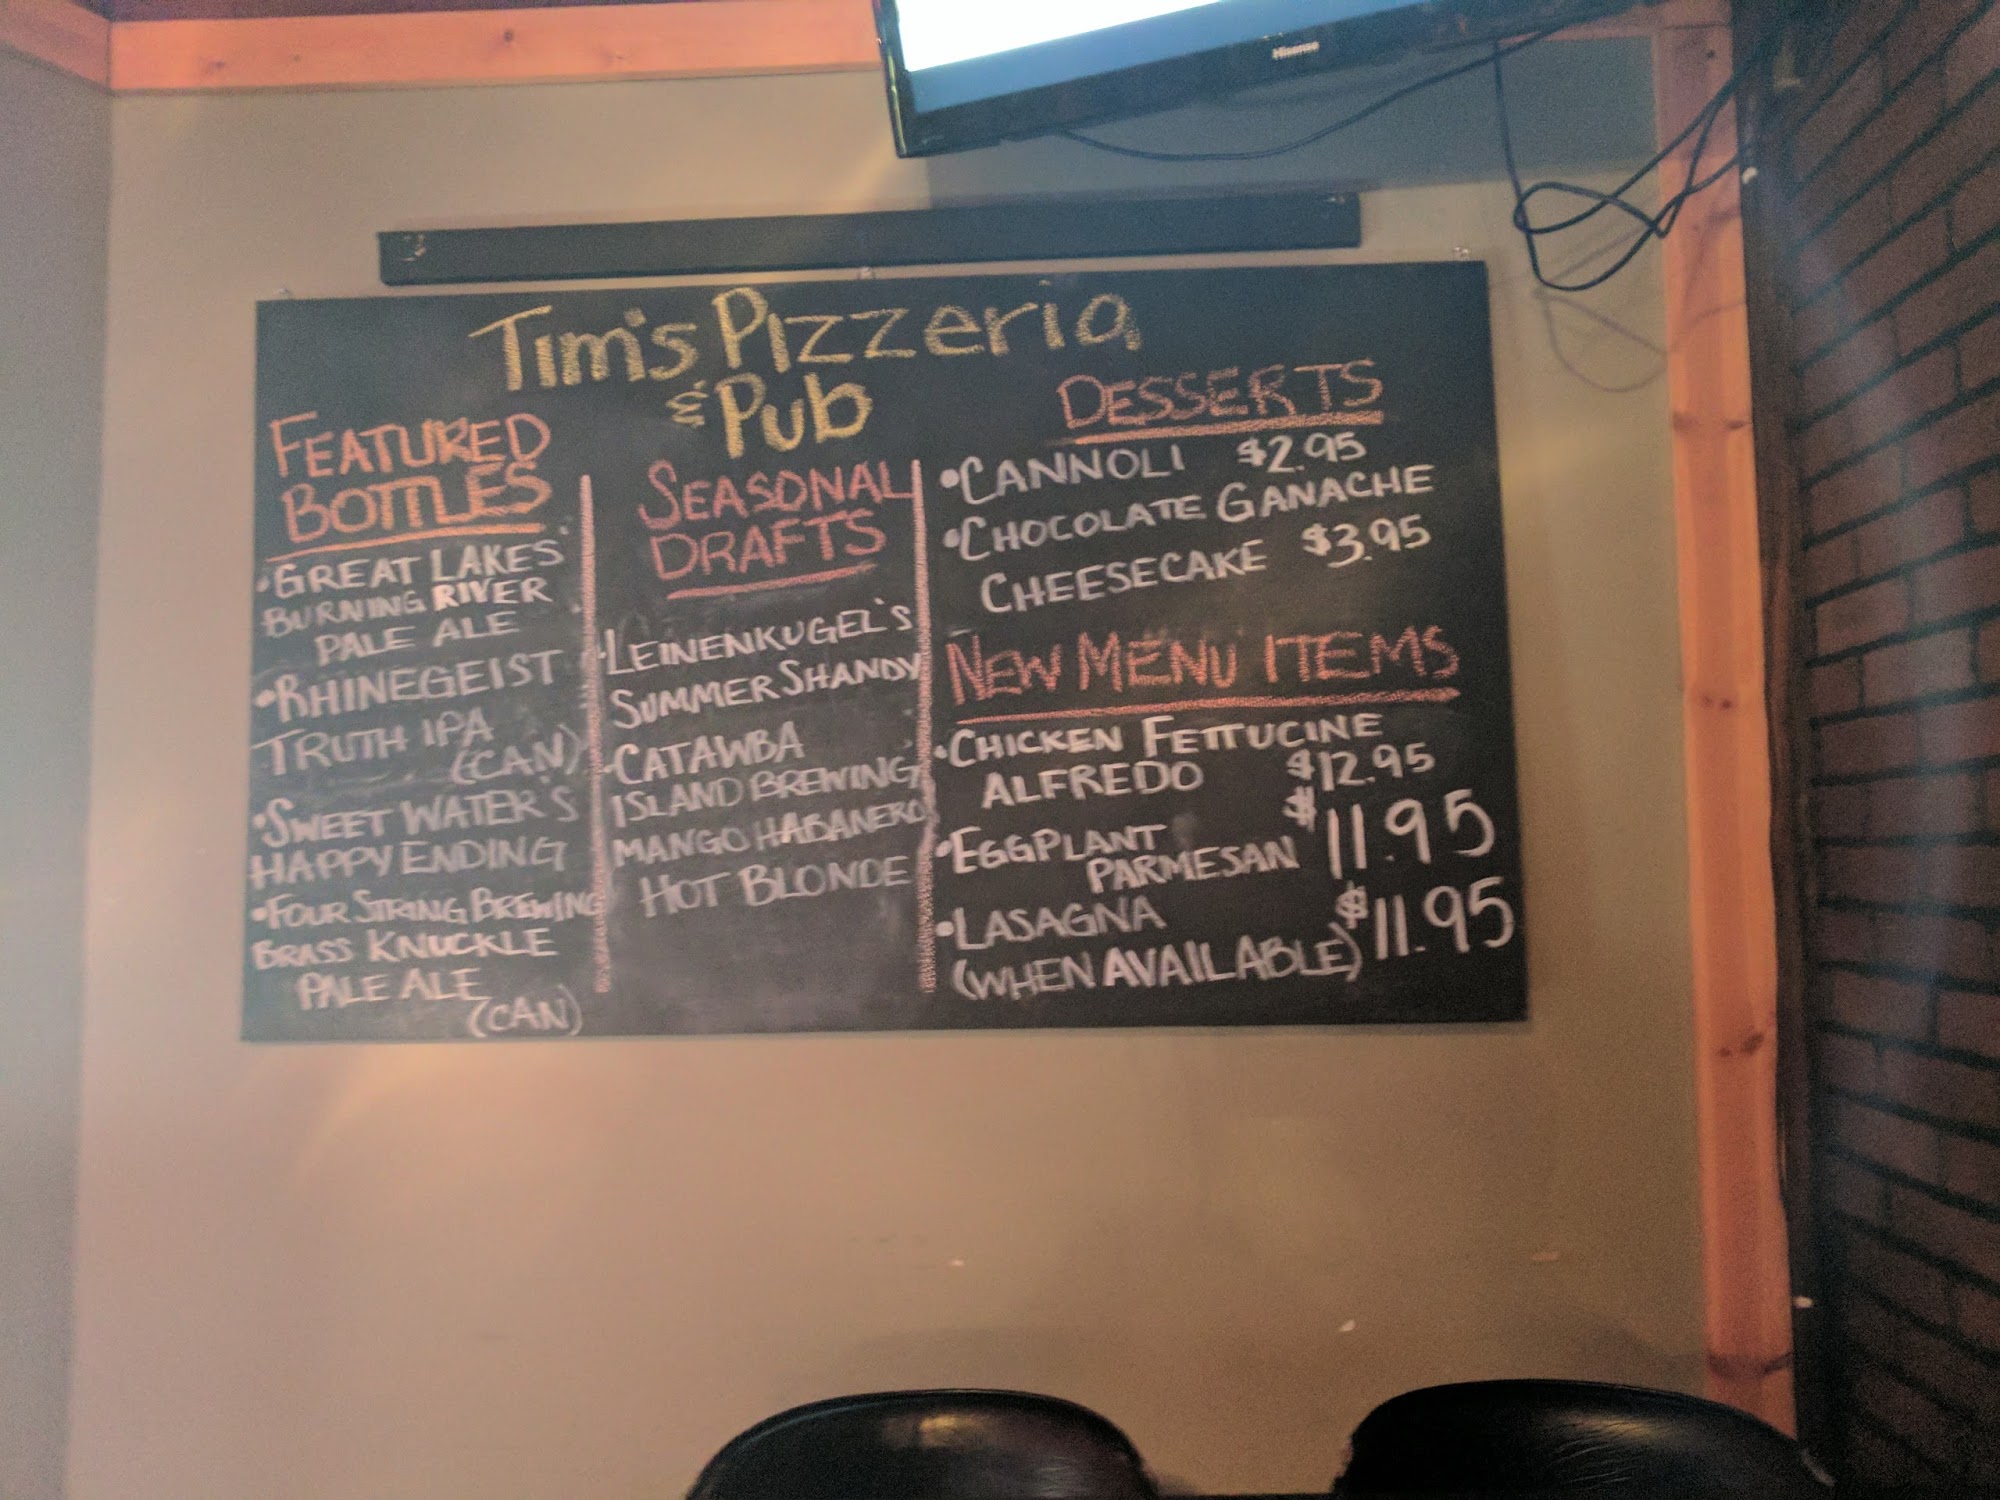 Hisense
Tim's Pizzeria
& Pub
FEATURED
BOTTLES
•GREAT LAKES'
BURNING RIVER
PALE ALE
•RHINEGEIST
TRUTH IPA
(CAN)
•SWEET WATER'S
HAPPY ENDING
•FOUR STRING BREWING
BRASS KNUCKLE
PALE ALE
(CAN)
SEASONAL
DRAFTS
•LEINENKUGEL'S
SUMMER SHANDY
•CATAWBA
ISLAND BREWING
MANGO HABANERO
HOT BLONDE
DESSERTS
•CANNOLI $2.95
•CHOCOLATE GANACHE
CHEESECAKE $3.95
NEW MENU ITEMS
•CHICKEN FETTUCINE
ALFREDO $12.95
•EGGPLANT
PARMESAN $11.95
•LASAGNA
(WHEN AVAILABLE) $11.95